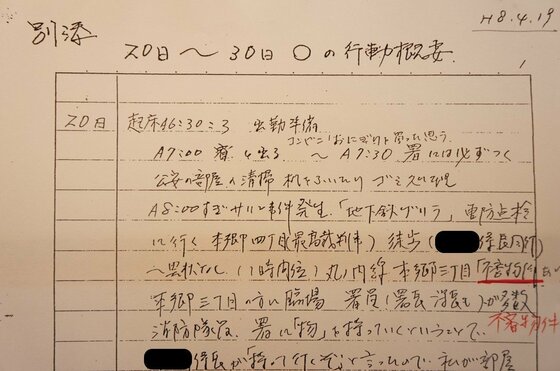 H8.4.19
別添
20日～30日 〇の行動概要
20日 起床A6:30:3 出勤準備
コンビニおにぎり 買った思う
A7:00 寮を出る ～ A7:30 署には必ずつく
公安の部屋の清掃 机をふいたり ゴミ
A8:00すぎサリン事件発生.「地下鉄ゲリラ」重防点検
に行く 本郷四丁目 最高裁判事) 徒歩( 係長同行
へ異状なし.(1時間位)丸ノ内線 本郷三丁目「不審物件
本郷三丁目の方に臨場 署員(署長 課長も)が多数
不審物件
消防隊 署に「物」を持っていくということで.
係長が「持って行くぞ」と言ったので.私が部屋